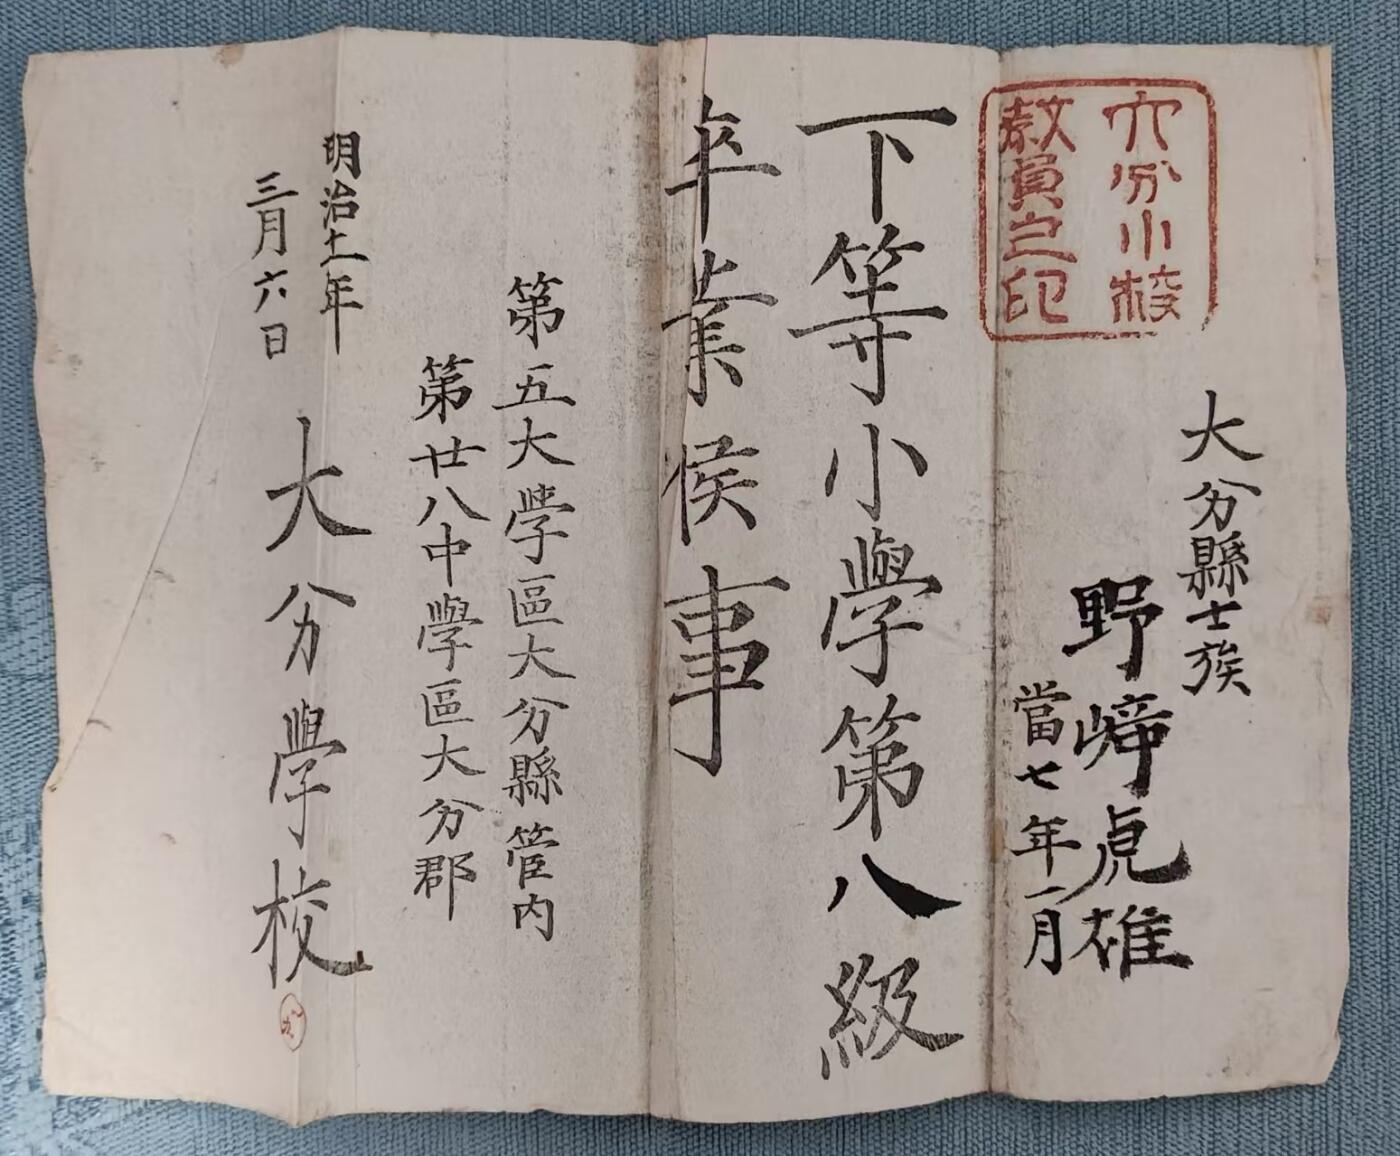 大分小校
教員之印
大分縣士族
野﨑虎雄
當七年一月
下等小學第八級
卒業候事
第五大學區大分縣管内
第廿八中學區大分郡
明治十一年
三月六日
大分學校